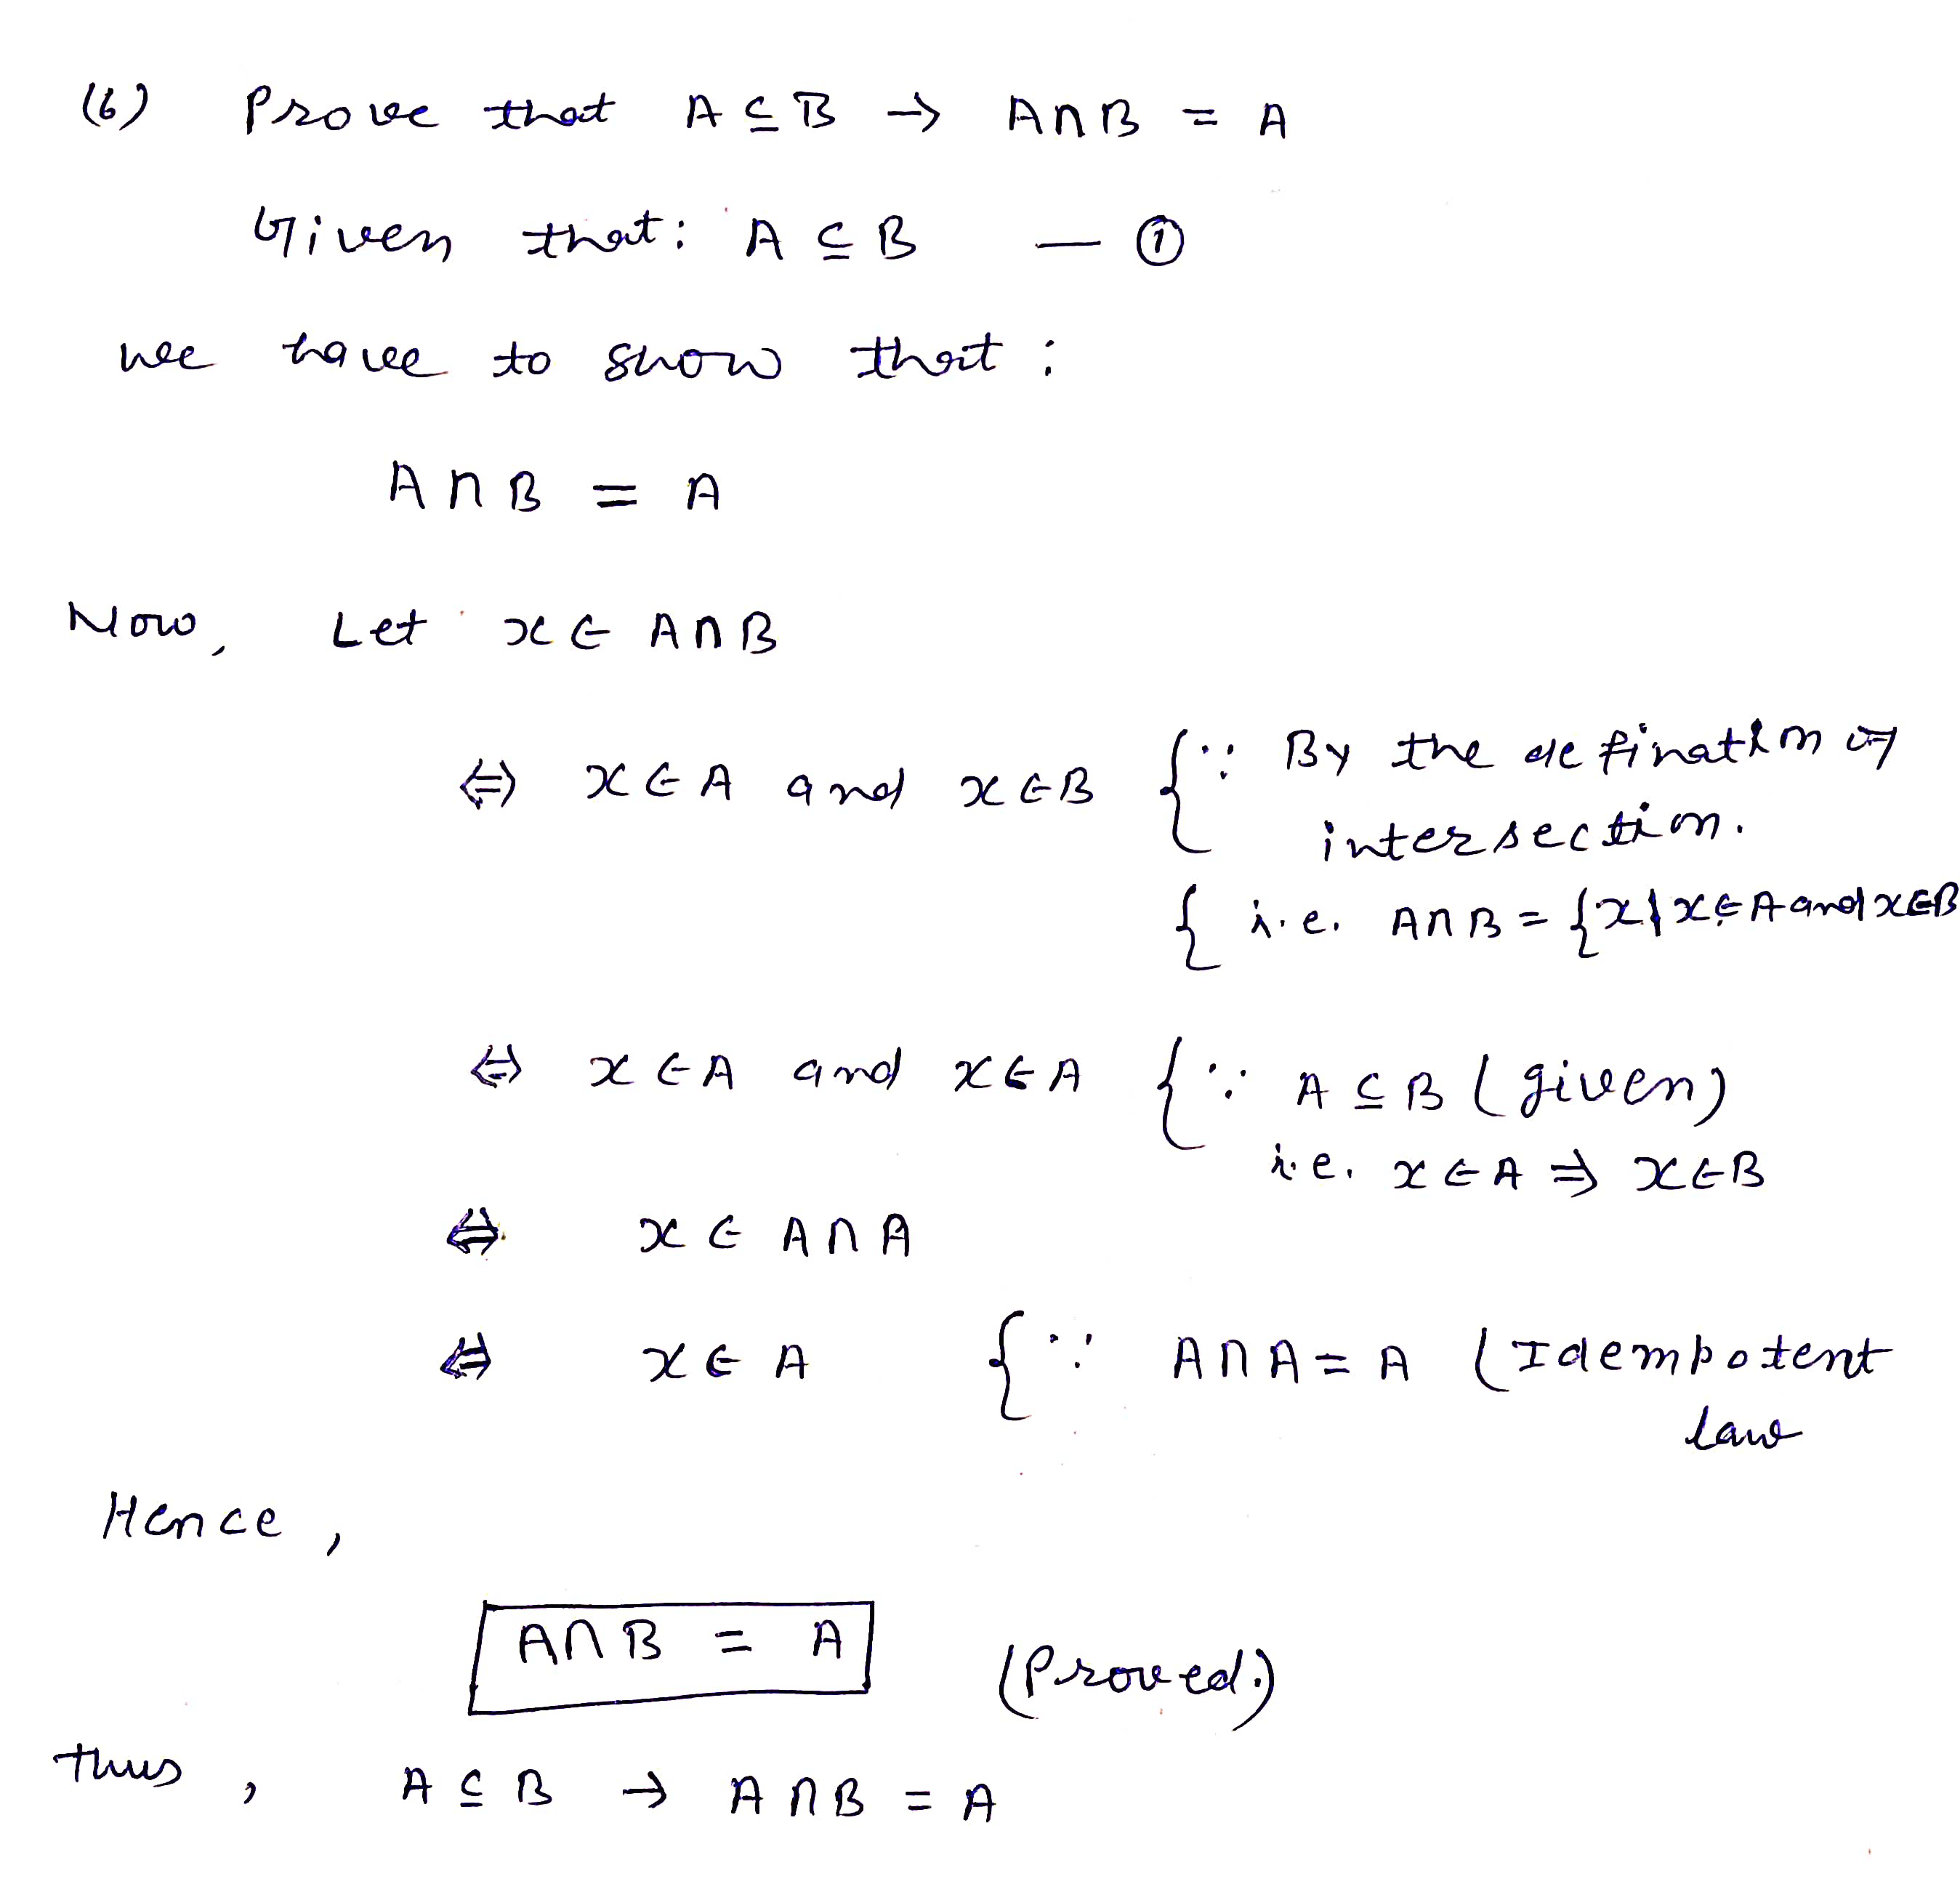 (6) Prove that A ⊆ B → A∩B = A
Given that: A ⊆ B — ①
we have to show that :
A∩B = A
Now, Let x ∈ A∩B
⇔ x ∈ A and x ∈ B { ∵ By the defination of
intersection.
{ i.e. A∩B = {x|x∈A and x∈B
⇔ x ∈ A and x ∈ A { ∵ A ⊆ B (given)
i.e. x ∈ A ⇒ x ∈ B
⇔ x ∈ A∩A
⇔ x ∈ A { ∵ A∩A = A (Idempotent
law
Hence ,
A∩B = A (Proved.)
thus , A ⊆ B → A∩B = A